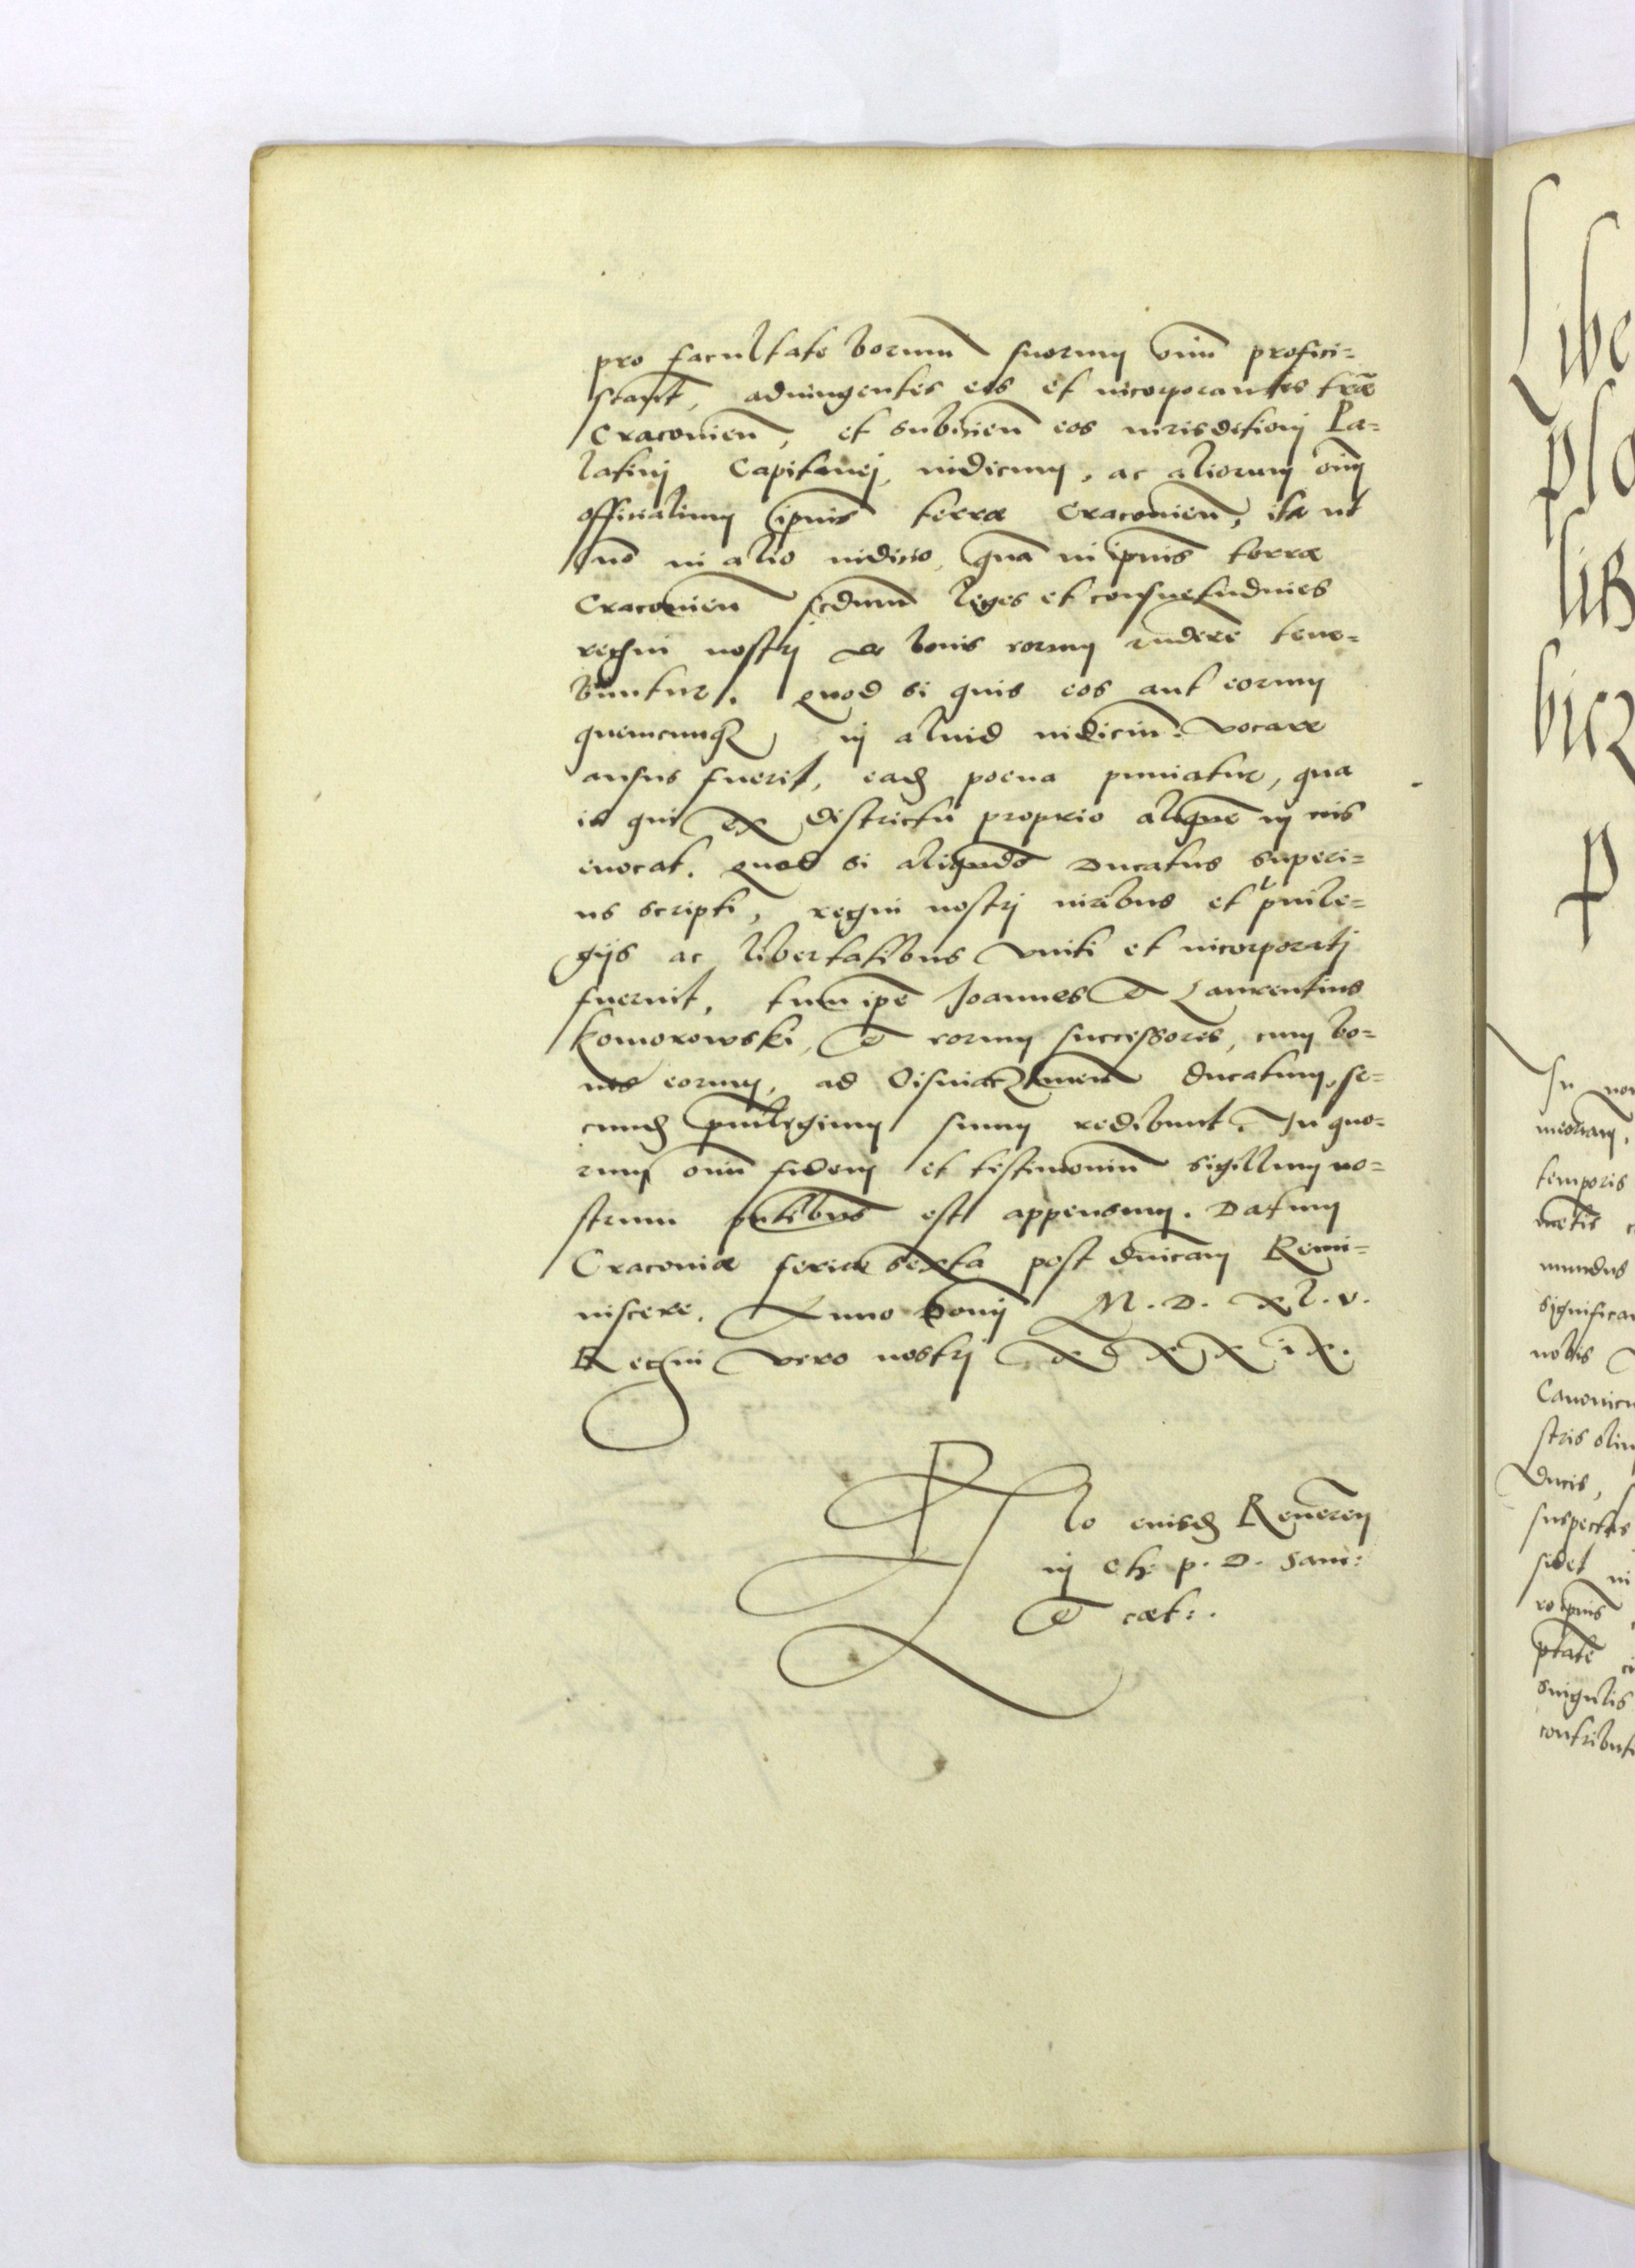 pro facultate bonorum suorum omnium profici=
scant, adiungentes eos et incorporantes terræ
Cracovien, et subiicien eos iurisdictionj Pa=
latinj Capitanej, iudicum, ac aliorum omnium
officialium ipsius terræ Cracovien, ita ut
non in alio iudicio, quam in ipsius terræ
Cracovien secundum leges et consuetudines
regni nostrj de bonis eorum respondere tene=
buntur. Quod si quis eos aut eorum
quemcunque in aliud iudicium vocare
ausus fuerit, eadem poena puniatur, qua
is qui ex districtu proprio aliquem in ius
evocat. Quod si aliquando Ducatus superi=
us scripti, regni nostrj iuribus et privile=
gijs ac libertatibus uniti et incorporatj
fuerint, tum ipse Joannes et Laurentius
Komorowski, et eorum successores, cum bo=
nis eorum, ad Osswiaczimen ducatum, se=
cundum privilegium suum redibunt. In quo=
rum omnium fidem et testimonium sigillum no=
strum presentibus est appensum. Datum
Cracoviæ feria sexta post dominicam Remi=
niscere. Anno domini M. D. xl. v.
Regni vero nostrj xxxix.
Relatio eiusdem Reverendi
in Chr. p. D. Sam:
et cæt:.
Libe
pla
bicz
P
In no
temporis
mundus
significa
nobis
Canonicu
stris olim
Ducis,
suspectus
sidet in
ro ipsius
singulis
contribut